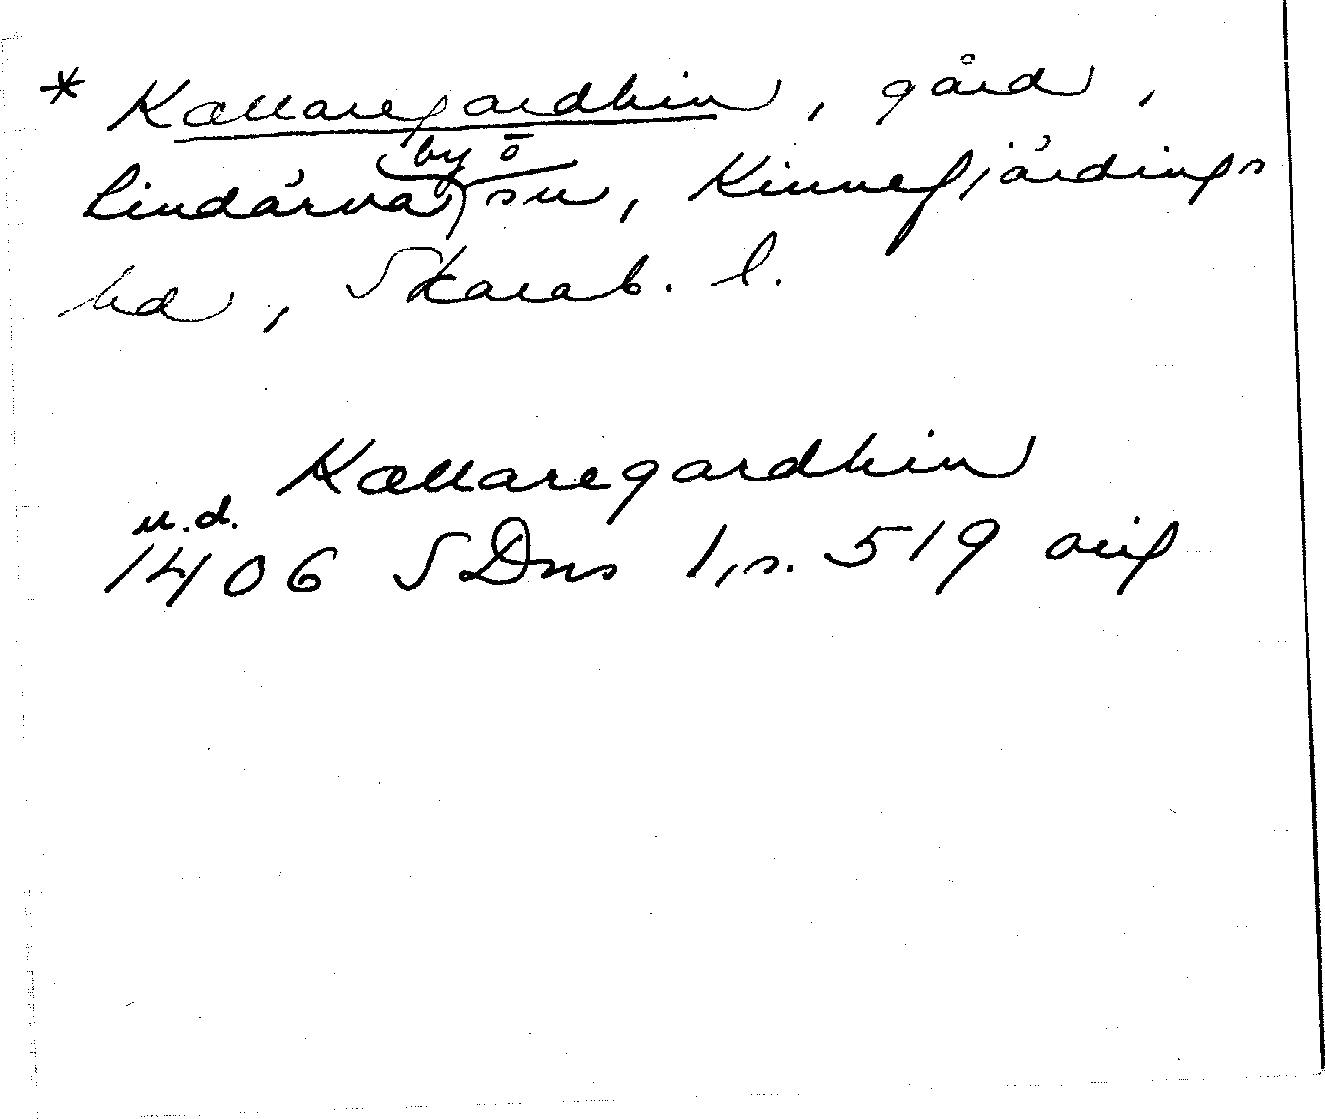 * Kællaregardhin, gård,
Lindärva by o sn, Kinnefjärdings
hd, Skarab. l.
Kællaregardhin
u.d.
1406 SDns 1, s. 519 orig